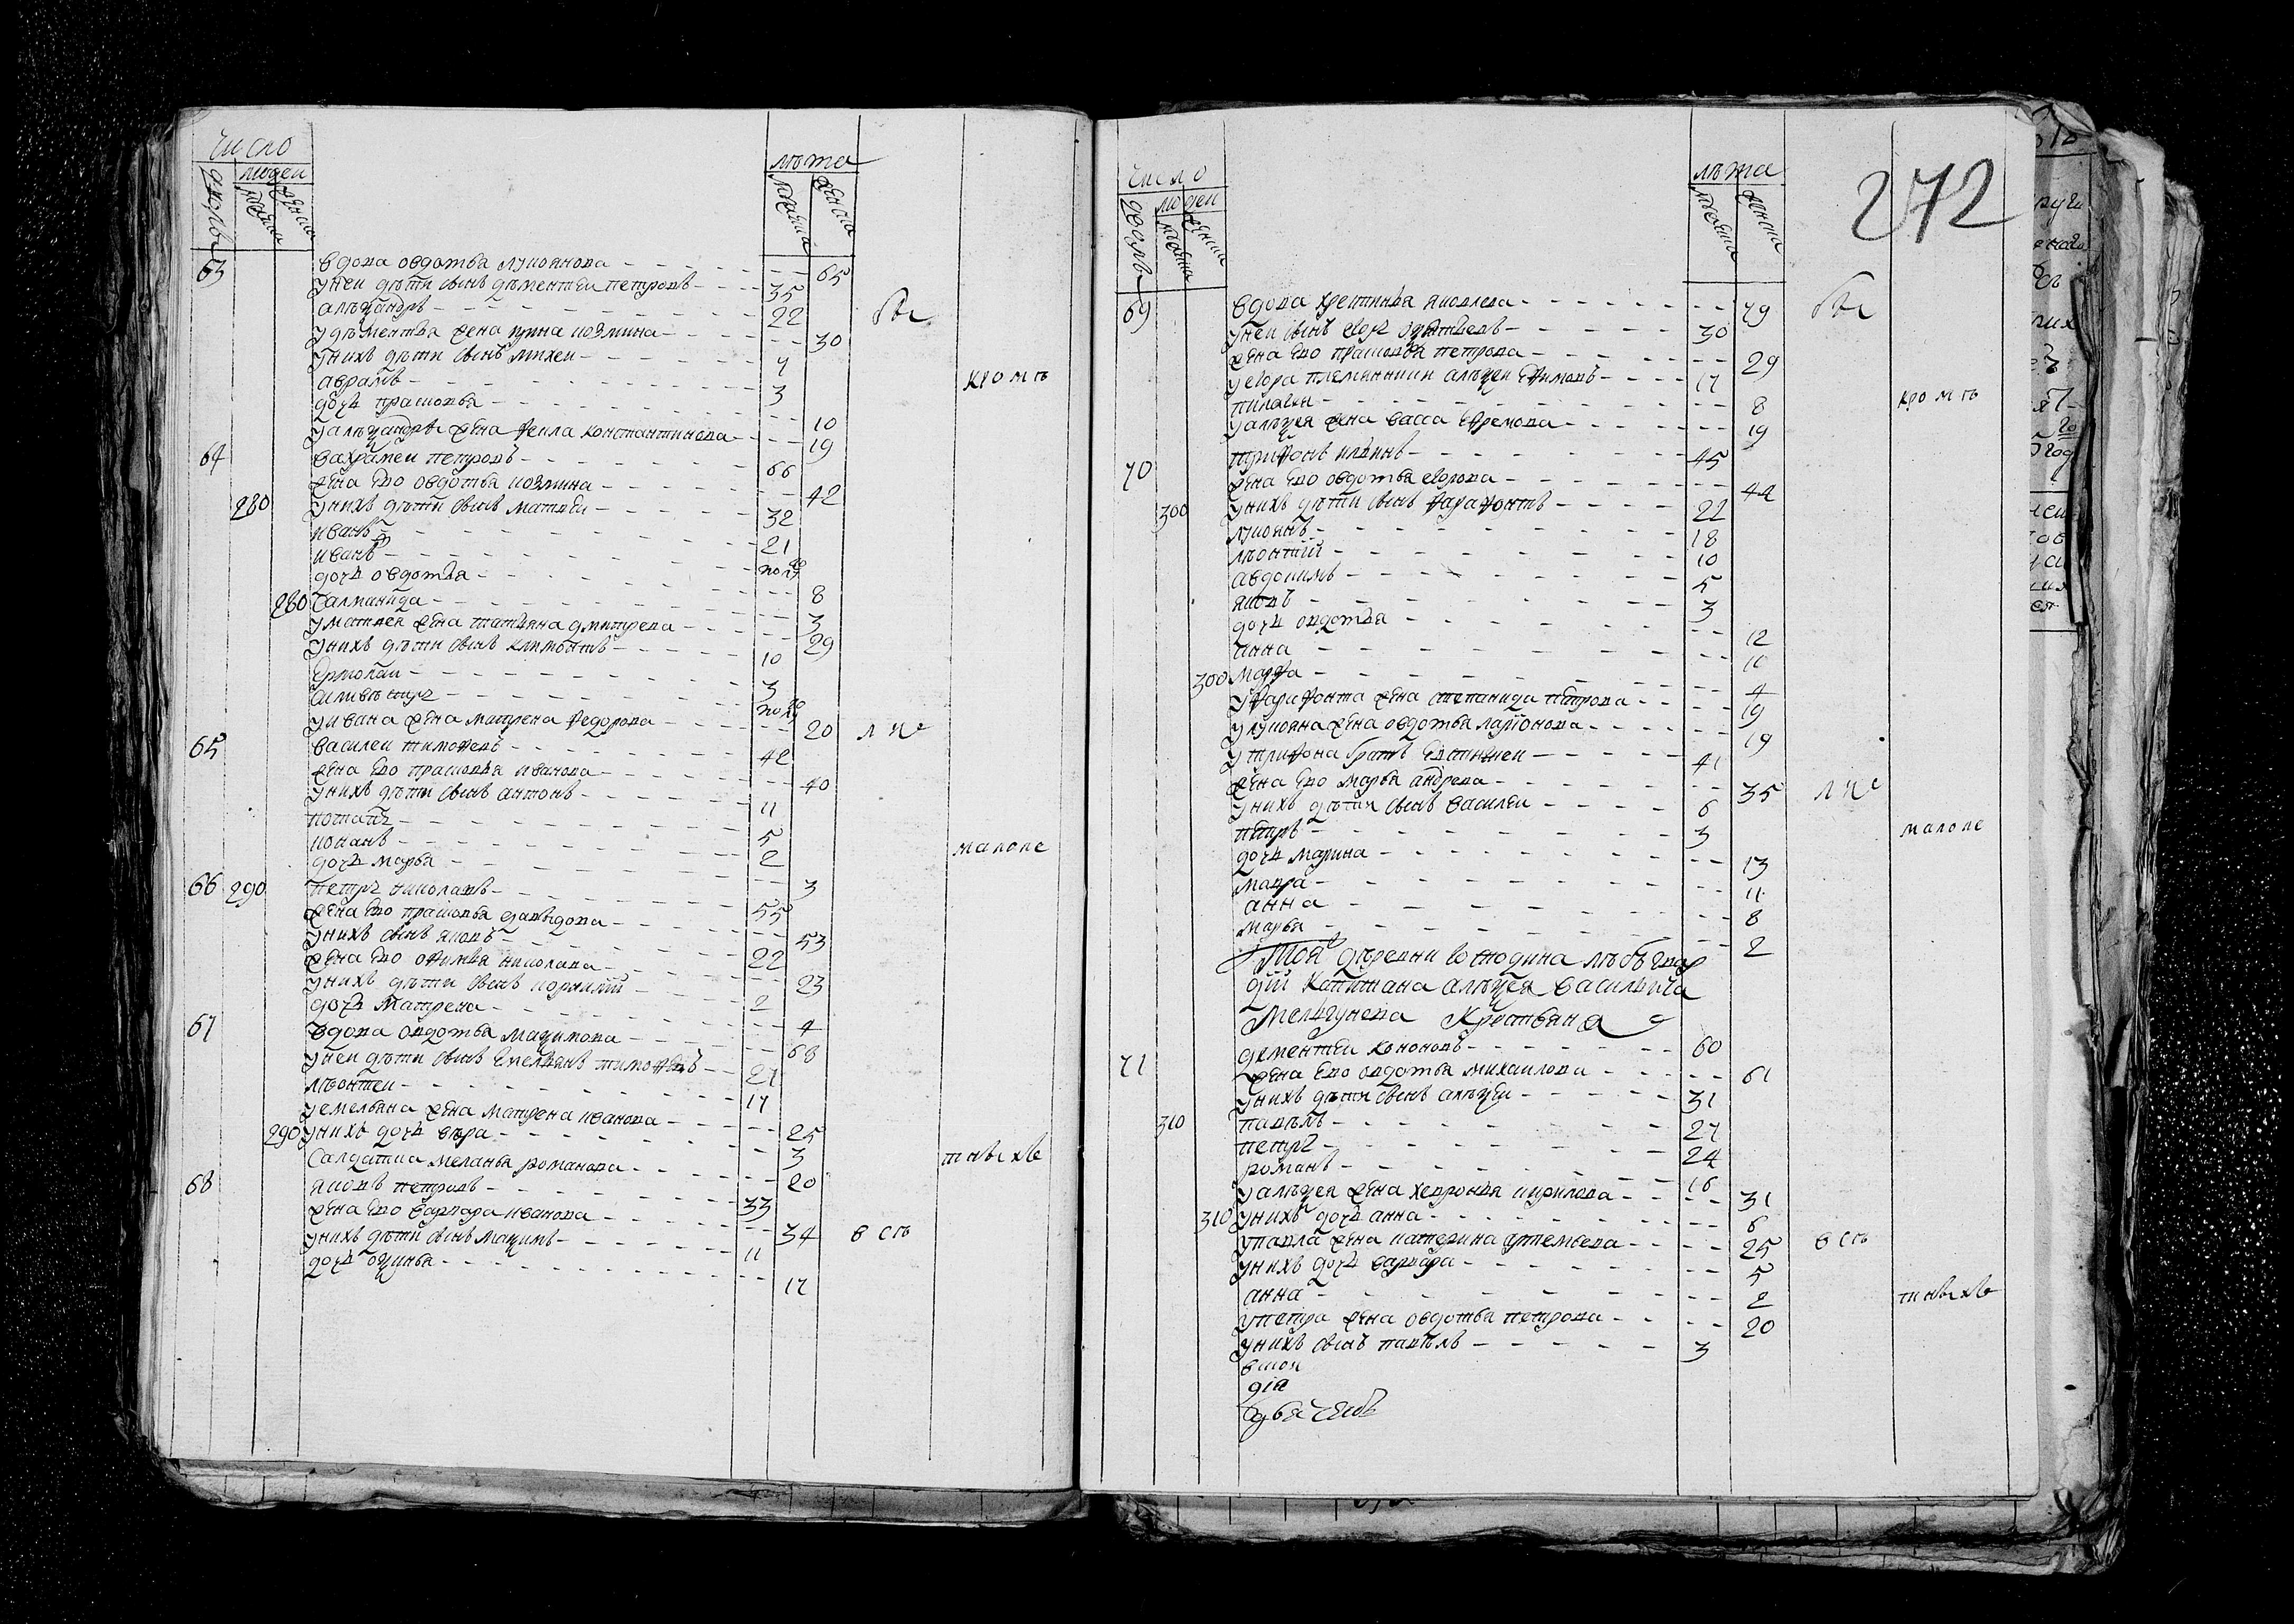 число
людей
дворы
мужеска
женска
лѣта
мужеска
женска
63 вдова овдотья лукьянова - - 65
унеи дѣти сынъ дѣментеи петровъ - - 35
алѣѯандръ - - 22
удѣментья жена ирина козмина - - 30
унихъ дѣти сынъ михеи - - 4
аврамъ - - 3
дочь прасковья - - 10
уалѣѯандръ жена ѳекла константинова - - 19
64 вахрамеи петровъ - - 66
жена Ево овдотья козмина - - 42
280 унихъ дѣти сынъ матвеи - - 32
иванъ - - 21
иванъ - - полгг
дочь овдотья - - 8
280 Салманида - - 3
уматвея жена татьяна дмитрева - - 29
унихъ дѣти сынъ климонтъ - - 10
Ермолаи - - 3
силивестръ - - полгг
уивана жена матрена ѳедорова - - 20
65 василеи тимоѳеевъ - - 42
жена Ево прасковья иванова - - 40
унихъ дѣти сынъ антонъ - - 11
потапъ - - 5
конанъ - - 2
дочь марья - - 3
66 290 петръ николаевъ - - 55
жена Ево прасковья давыдова - - 53
унихъ сынъ яковъ - - 22
жена Ево оѳимья николаева - - 23
унихъ дѣти сынъ корнилий - - 2
дочь матрена - - 4
67 вдова овдотья маѯимова - - 68
унеи дѣти сынъ Емельянъ тимоѳеевъ - - 27
лѣонтеи - - 17
уемельяна жена матрена иванова - - 25
290 унихъ дочь вѣра - - 3
Салдатка меланья романова - - 20
68 яковъ петровъ - - 33
жена Ево варвара иванова - - 34
унихъ дѣти сынъ маѯимъ - - 11
дочь оѯинья - - 12
кромѣ
малопе
тныхъ
в сѣ
число
людеи
дворы
мужеска
женска
лѣта
мужеска
женска
272
69 вдова крестинья яковлева - - 79
унеи сынъ егоръ - - 30
жена Ево прасковья петрова - - 29
уегора племянники алѣѯеи Еѳимовъ - - 17
пилагея - - 8
уалѣѯея жена васса Еѳремова - - 19
70 триѳонъ ильинъ - - 45
жена Ево овдотья егорова - - 44
300 унихъ дѣти сынъ ѳараѳонтъ - - 22
лукьянъ - - 18
лѣонтий - - 10
авдокимъ - - 5
яковъ - - 3
дочь овдотья - - 12
анна - - 10
300 марѳа - - 4
уѳараѳонта жена степанида петрова - - 19
улукьяна жена овдотья ларионова - - 19
утриѳона братъ Евстигнеи - - 41
жена Ево марья андрева - - 35
унихъ дѣти сынъ василеи - - 6
петръ - - 3
дочь марина - - 13
мавра - - 11
анна - - 8
марья - - 2
Тоя дѣревни господина лѣбгвар
дии Капитана алѣѯея васильича
Мелгунова Крестьяня
71 дементеи кононовъ - - 60
жена Ево овдотья михаилова - - 61
унихъ дѣти сынъ алѣѯеи - - 31
310 павѣлъ - - 27
петръ - - 24
романъ - - 16
уалѣѯея жена хевронья кирилова - - 31
310 унихъ дочь анна - - 6
упавла жена катерина артемьева - - 25
унихъ дочь варвара - - 5
анна - - 2
упетра жена овдотья петрова - - 20
унихъ сынъ павѣлъ - - 3
дiа
кромѣ
малопе
в сѣ
тныхъ